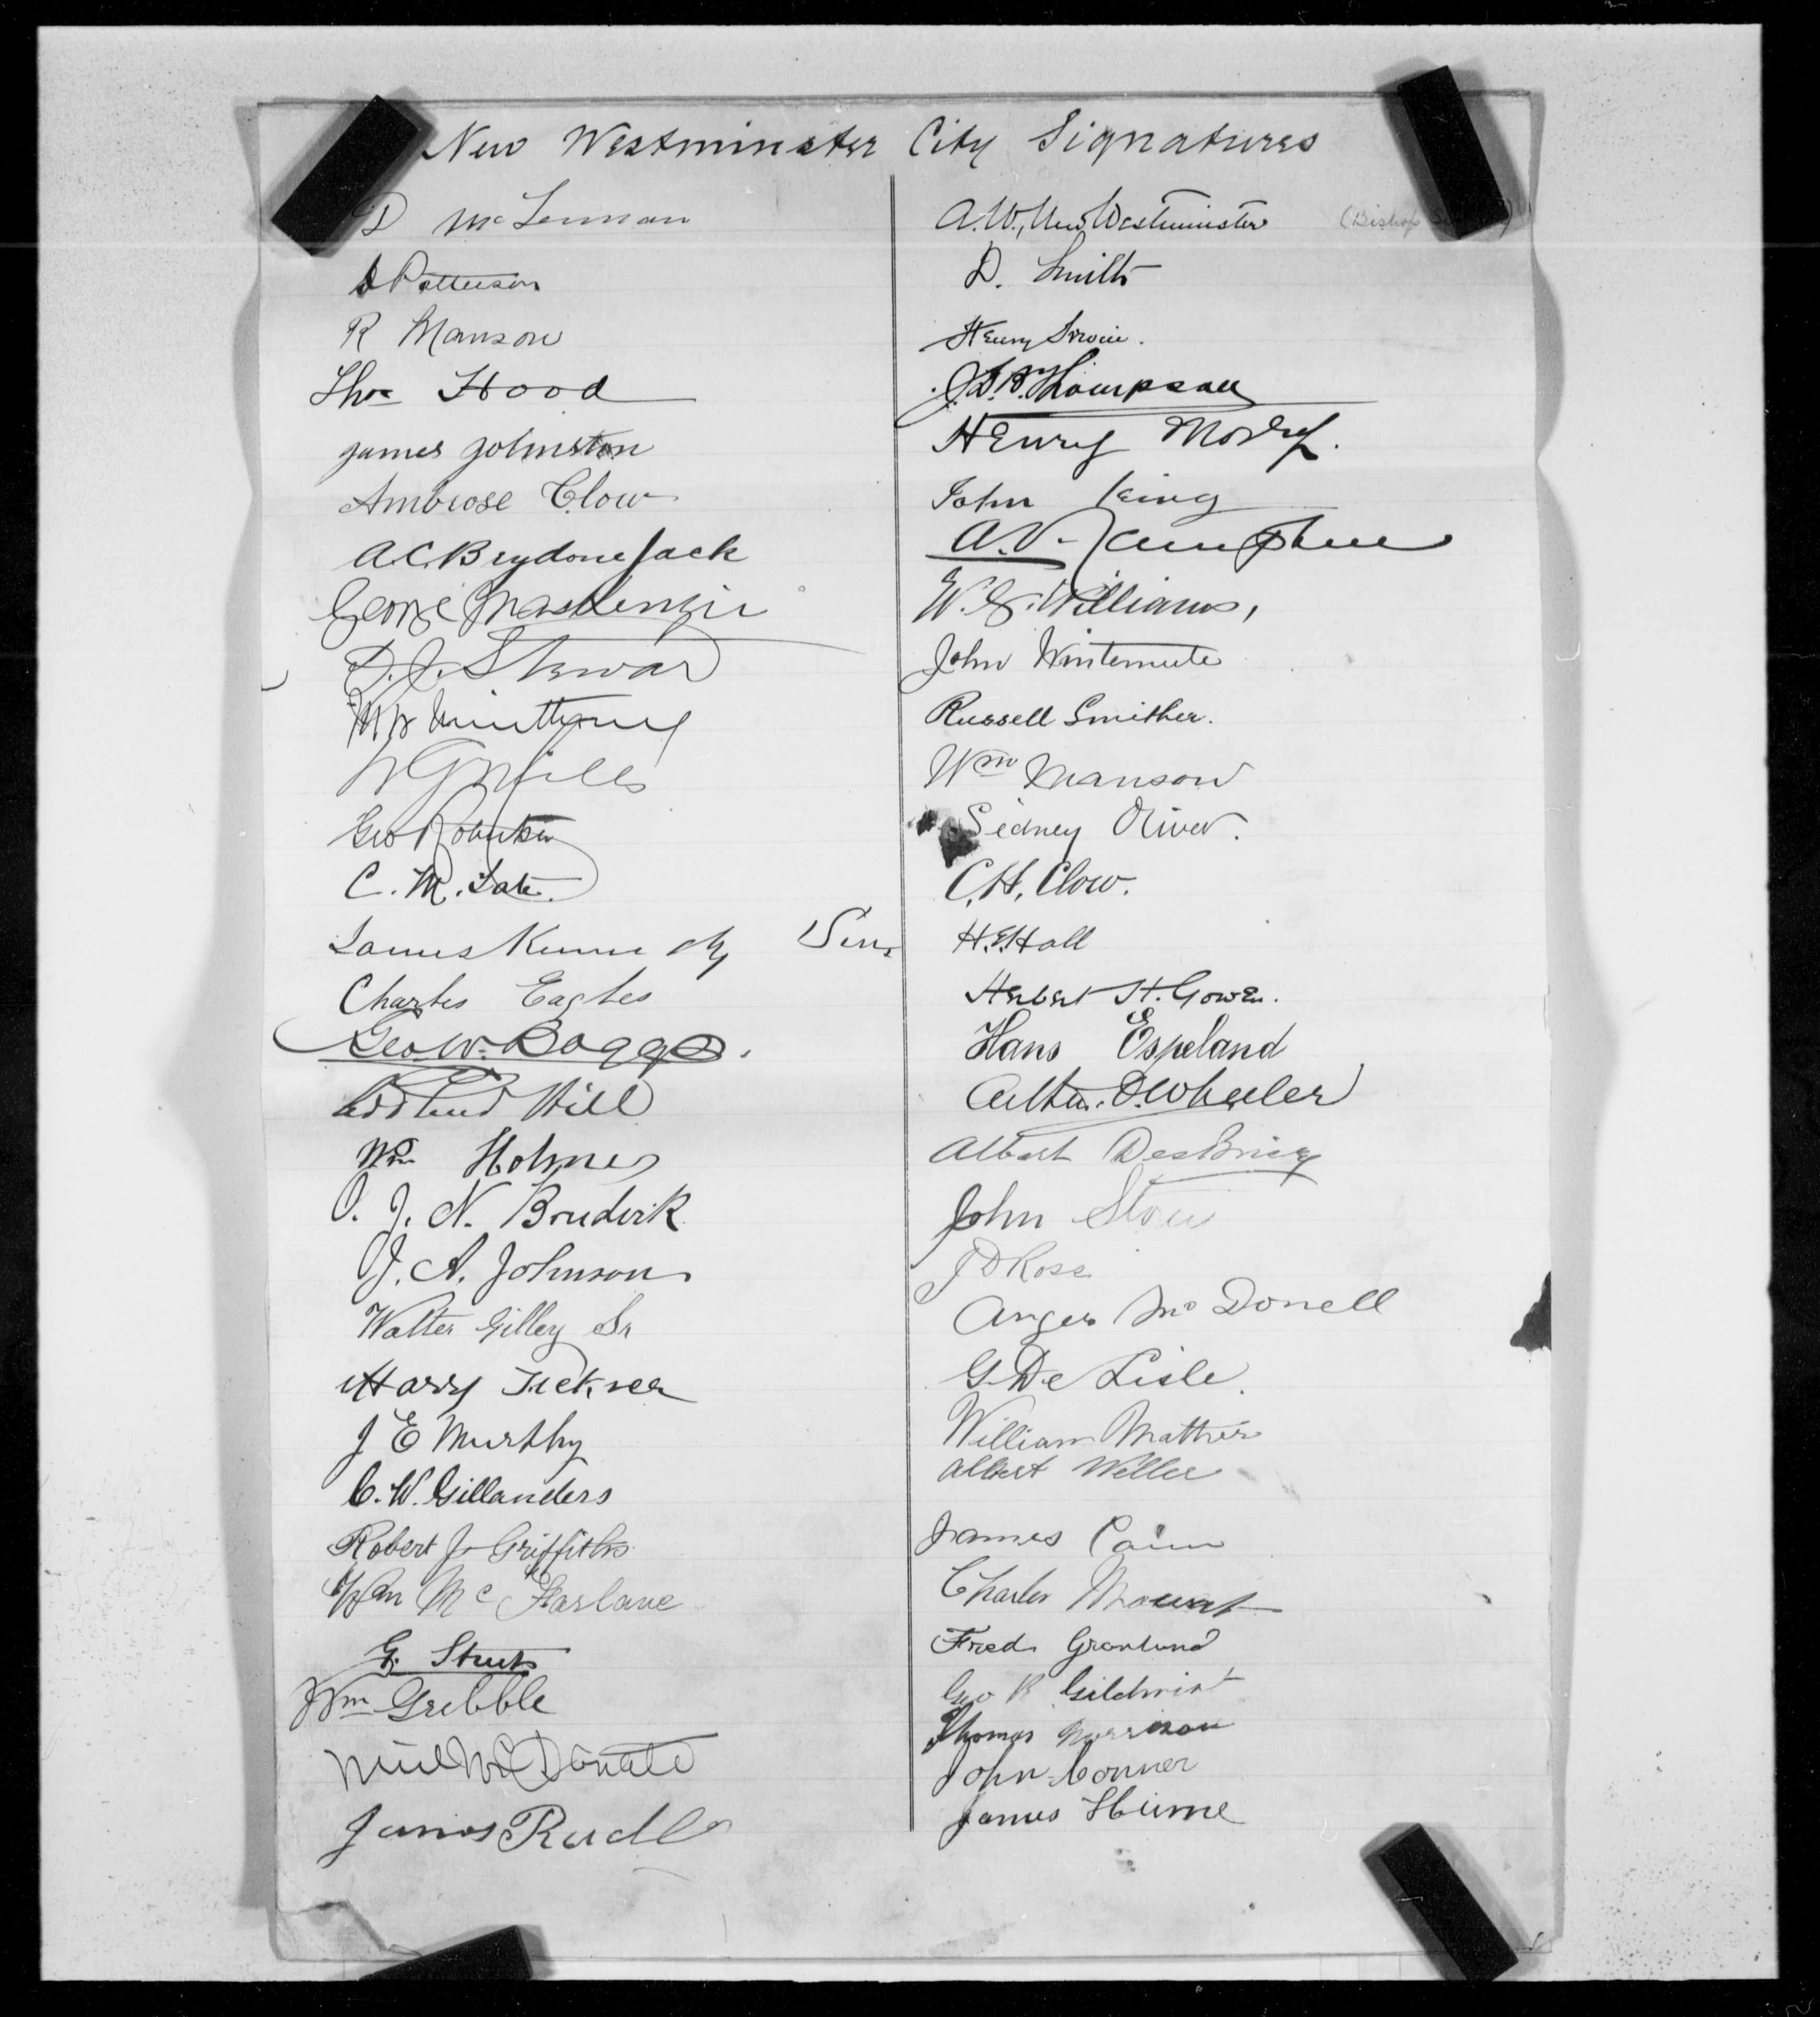 New Westminster City Signatures
D McLennan
D Patterson
R Manson
Thos Hood
James Johnston
Ambrose Clow
A.C. Brydone Jack
George Mackenzie
D. J. Stewar
Mills
Geo Robertson
C. M. Tate
James Kennedy Sen.
Charles Eagles
Geo. W. Boggs.
Hill
Wm Holmes
O. J. N. Bruderik
J. A. Johnson
Walter Gilley Sr
Harry Tickner
J E Murphy
C. W. Gillanders
Robert J. Griffiths
Wm McFarlane
Wm Gribble
Neil McDonald
James Rudd
A. W., New Westminster (Bishop
D. Smith
Henry Irwin.
Thompson
Henry
John King
A.D.
W. G. Williams,
John Wintemute
Russell Smither.
Wm Manson
Sidney Oliver.
C. H. Clow.
H. E. Hall
Herbert H. Gowen.
Hans Espeland
Arthur O. Wheeler
Albert DesBrisay
John
J D Ross
Angus McDonell
G. De Lisle.
William Mather
Albert Weller
James Cain
Charles Mount
Fred Granlund
Geo R Gilchrist
Thomas Morrison
John Conner
James Hume